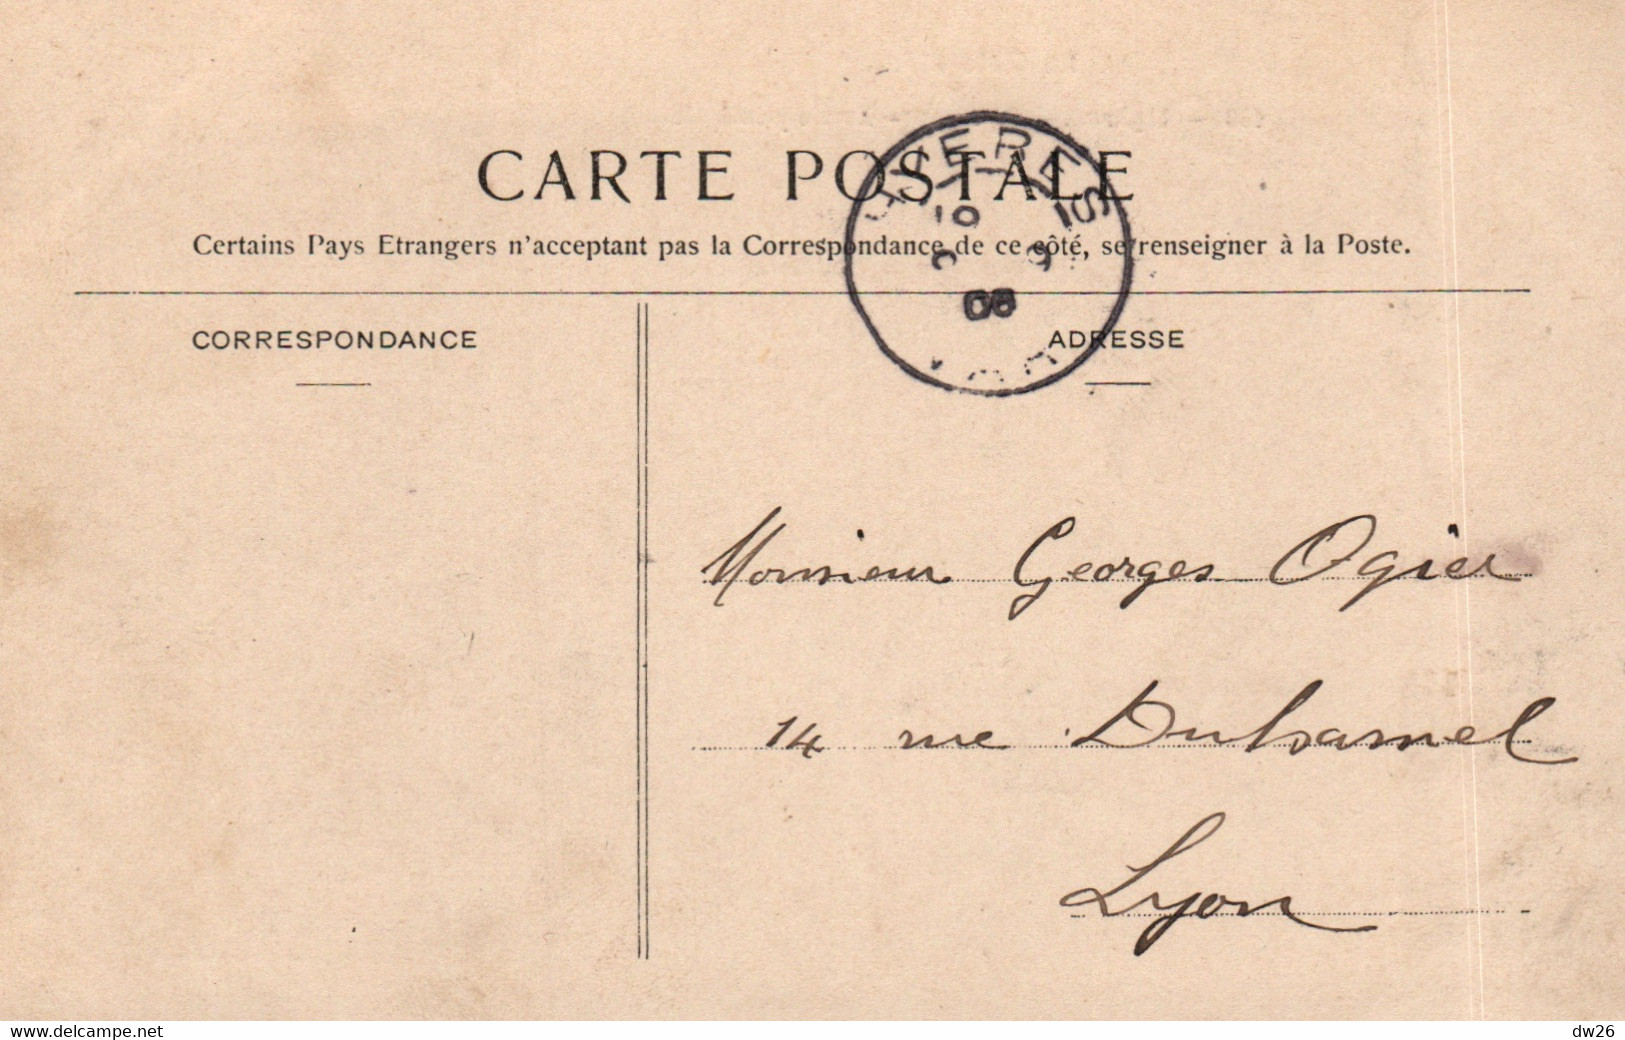 CARTE POSTALE
HYERES
08
Certains Pays Etrangers n'acceptant pas la Correspondance de ce côté, se renseigner à la Poste.
CORRESPONDANCE
ADRESSE
Monsieur Georges Ogier
14 rue Duhamel
Lyon
www.delcampe.net
dw26